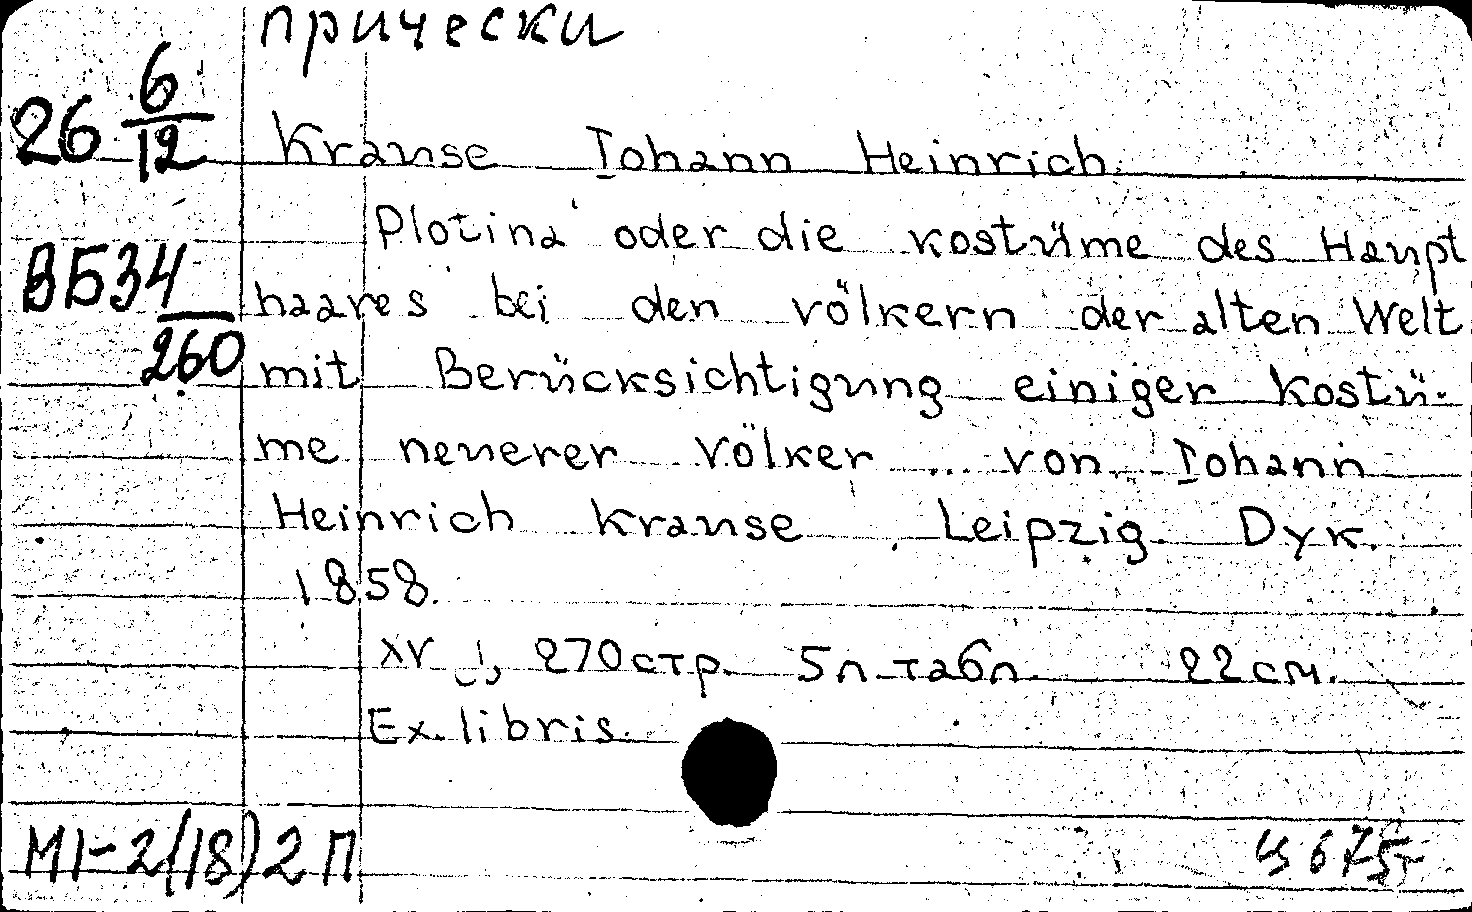 прически
26 6/12
Krause Iohann Heinrich.
Plotina oder die kostüme des Haupt
ВБ34/260
haares bei den völkern der alten Welt
mit Berücksichtigung einiger kostü-
me neuerer völker ... von Iohann
Heinrich Krause. Leipzig. Dyk.
1858.
XV, 270 стр. 5 л. табл. 22 см.
Ex. libris.
МI-2(18)2П
675